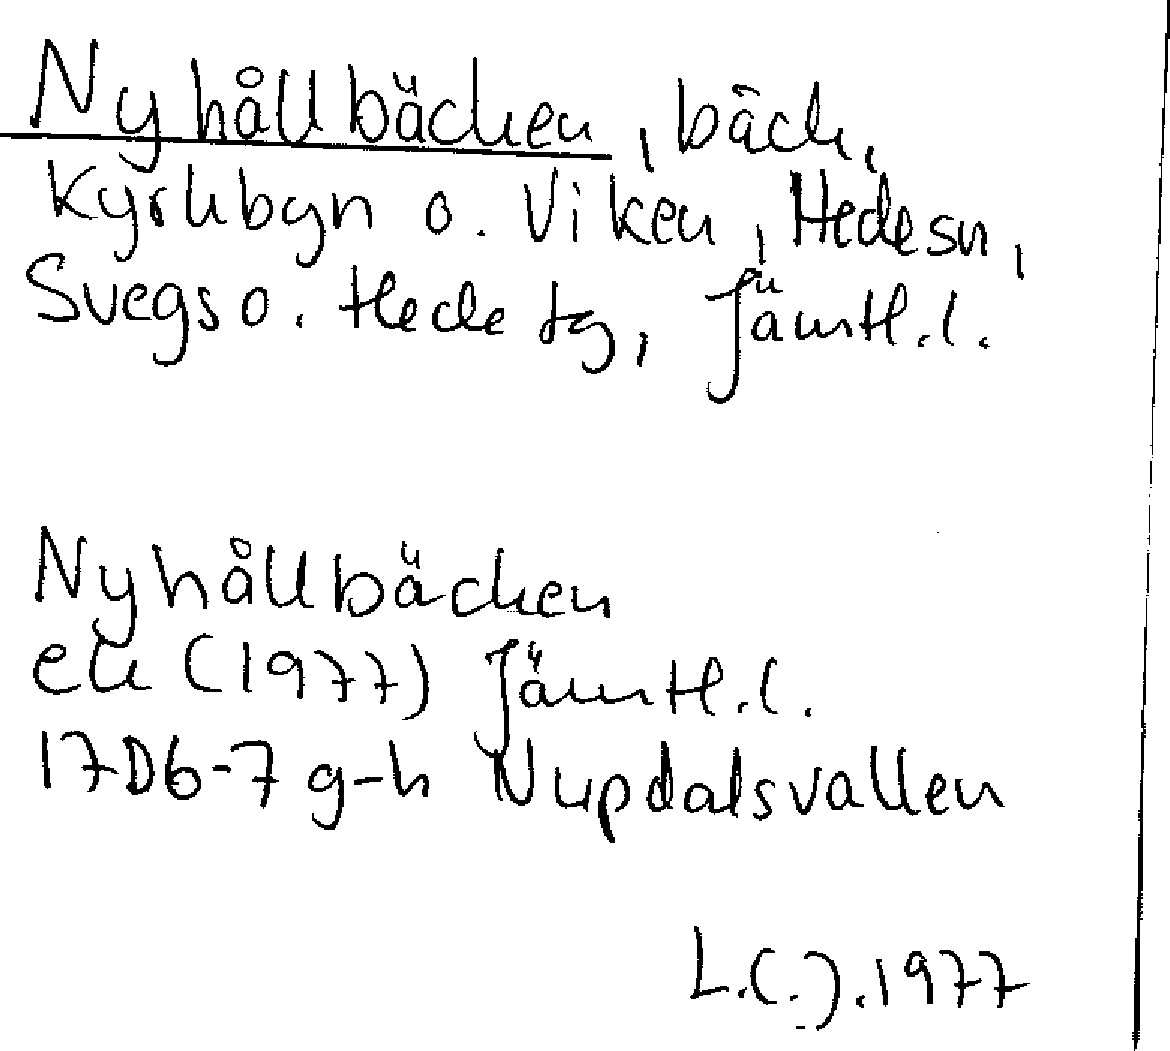 Nyhållbäcken, bäck,
Kyrkbyn o. Viken, Hedesn,
Svegs o. Hede tg, Jämtl. l.
Nyhållbäcken
ek (1977) Jämtl. l.
17D6-7 g-h Nupdalsvallen
1977